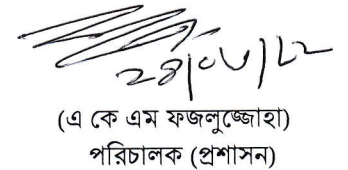 (এ কে এম ফজলুজ্জোহা)
পরিচালক (প্রশাসন)